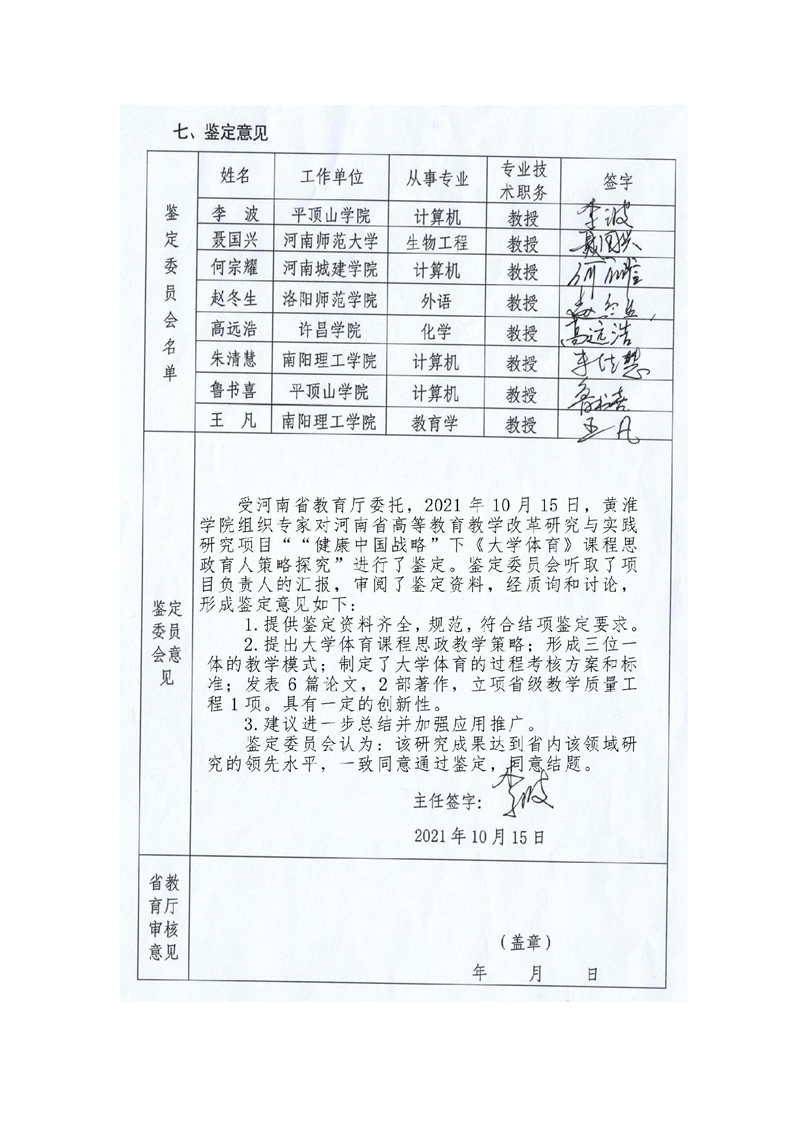 七、鉴定意见
鉴定委员会名单
姓名 工作单位 从事专业 专业技术职务 签字
李 波 平顶山学院 计算机 教授 李波
聂国兴 河南师范大学 生物工程 教授 聂国兴
何宗耀 河南城建学院 计算机 教授
赵冬生 洛阳师范学院 外语 教授
高远浩 许昌学院 化学 教授 高远浩
朱清慧 南阳理工学院 计算机 教授
鲁书喜 平顶山学院 计算机 教授 鲁书喜
王 凡 南阳理工学院 教育学 教授 王凡
鉴定委员会意见
受河南省教育厅委托，2021 年 10 月 15 日，黄淮
学院组织专家对河南省高等教育教学改革研究与实践
研究项目““健康中国战略”下《大学体育》课程思
政育人策略探究”进行了鉴定。鉴定委员会听取了项
目负责人的汇报，审阅了鉴定资料，经质询和讨论，
形成鉴定意见如下：
1.提供鉴定资料齐全，规范，符合结项鉴定要求。
2.提出大学体育课程思政教学策略；形成三位一
体的教学模式；制定了大学体育的过程考核方案和标
准；发表 6 篇论文，2 部著作，立项省级教学质量工
程 1 项。具有一定的创新性。
3.建议进一步总结并加强应用推广。
鉴定委员会认为：该研究成果达到省内该领域研
究的领先水平，一致同意通过鉴定，同意结题。
主任签字： 李波
2021 年 10 月 15 日
省教育厅审核意见
（盖章）
年 月 日